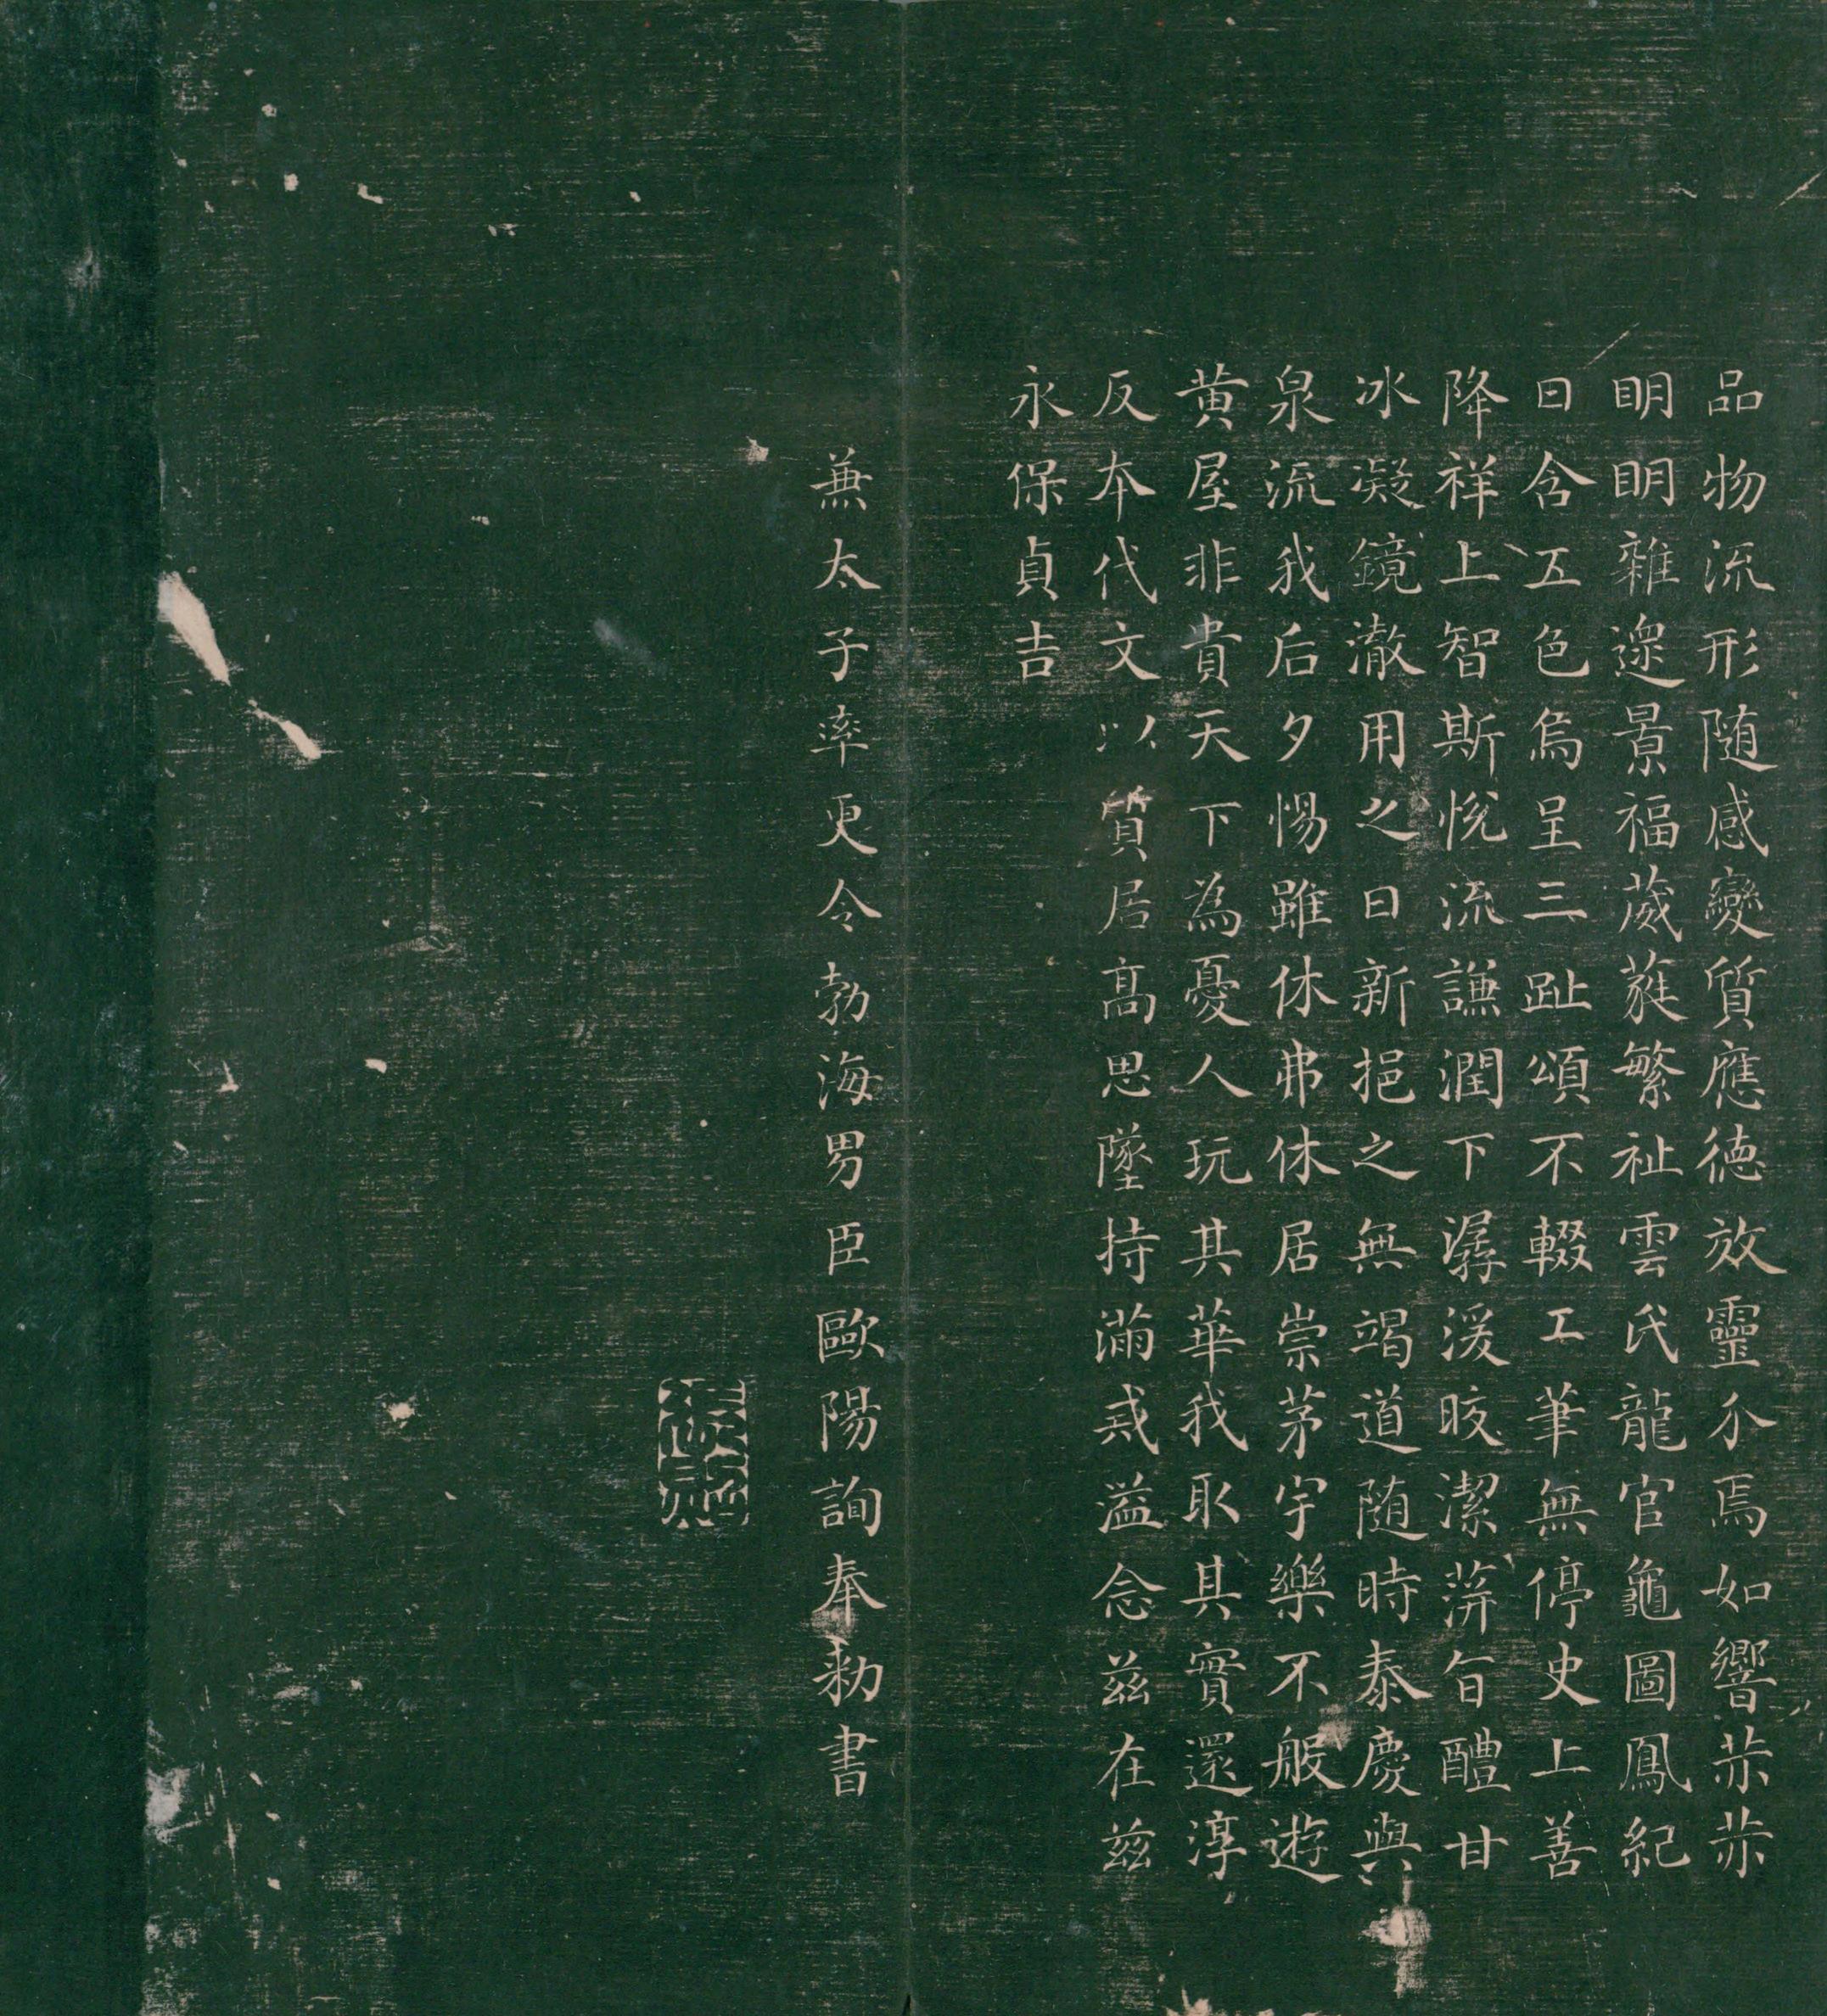 品物流形随感變質應德放靈介焉如響赫赫
明明雜遝景福葳蕤繁祉雲氏龍官龜圖鳳紀
日含五色烏呈三趾頌不輟工筆無停史上善
降祥上智斯悅流謙潤下潺湲皎潔蓱旨醴甘
冰凝鏡澈用之日新挹之無竭道随時泰慶與
泉流我后夕惕雖休弗休居崇茅宇樂不般遊
黃屋非貴天下為憂人玩其華我取其實還淳
反本代文以質居高思墜持滿戒溢念茲在茲
永保貞吉
兼太子率更令勃海男臣歐陽詢奉勅書